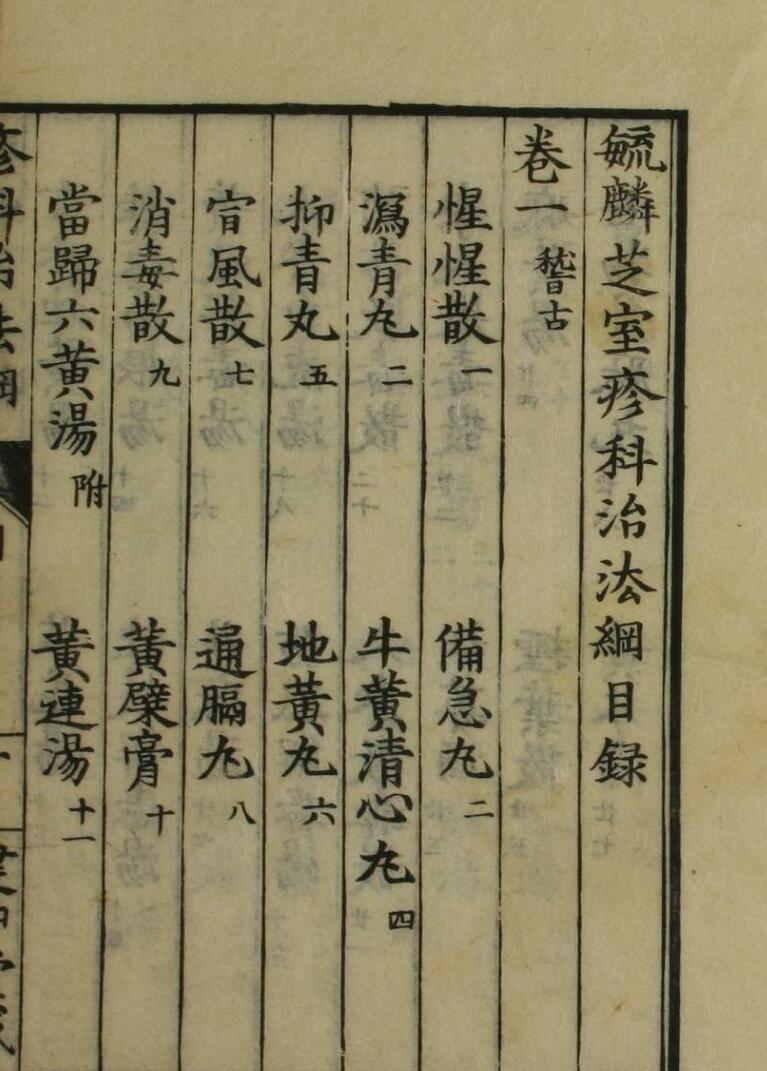 毓麟芝室疹科治法綱目録
卷一 稽古
惺惺散一 備急丸二
瀉青丸二 牛黄清心丸四
抑青丸五 地黄丸六
宣風散七 通膈丸八
消毒散九 黄檗膏十
當歸六黄湯附 黄連湯十一
疹科治法綱